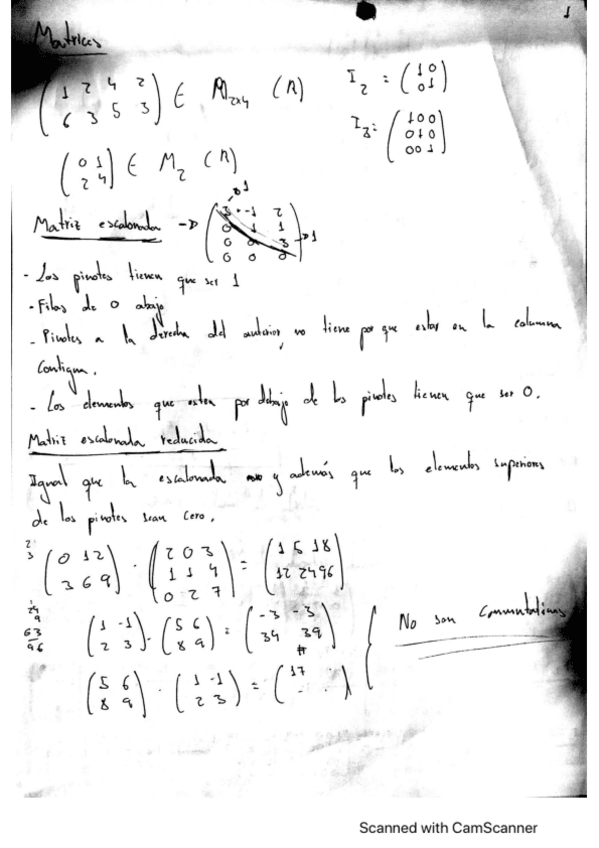 1
Matrices
( 1 2 4 2 ) ∈ M2x4 (R) I2 = ( 1 0 )
( 6 3 5 3 ) ( 0 1 )
I3 = ( 1 0 0 )
( 0 1 0 )
( 0 0 1 )
( 0 1 ) ∈ M2 (R)
( 2 4 )
Matriz escalonada → ( 3 -1 2 ) → 1
( 0 1 1 )
( 0 0 3 ) → 1
( 0 0 0 )
- Los pivotes tienen que ser 1
- Filas de 0 abajo
- Pivotes a la derecha del anterior, no tiene por que estar en la columna
contigua.
- Los elementos que esten por debajo de los pivotes tienen que ser 0.
Matriz escalonada reducida
Igual que la escalonada y además que los elementos superiores
de los pivotes sean cero.
2
3
( 0 1 2 ) · ( 2 0 3 ) = ( 1 5 18 )
( 3 6 9 ) ( 1 1 4 ) ( 12 24 96 )
( 0 2 7 )
24
9
63
96
( 1 -1 ) · ( 5 6 ) = ( -3 -3 )
( 2 3 ) ( 8 9 ) ( 34 39 )
#
( 5 6 ) · ( 1 -1 ) = ( 17 · )
( 8 9 ) ( 2 3 ) ( · · )
No son conmutativas
Scanned with CamScanner